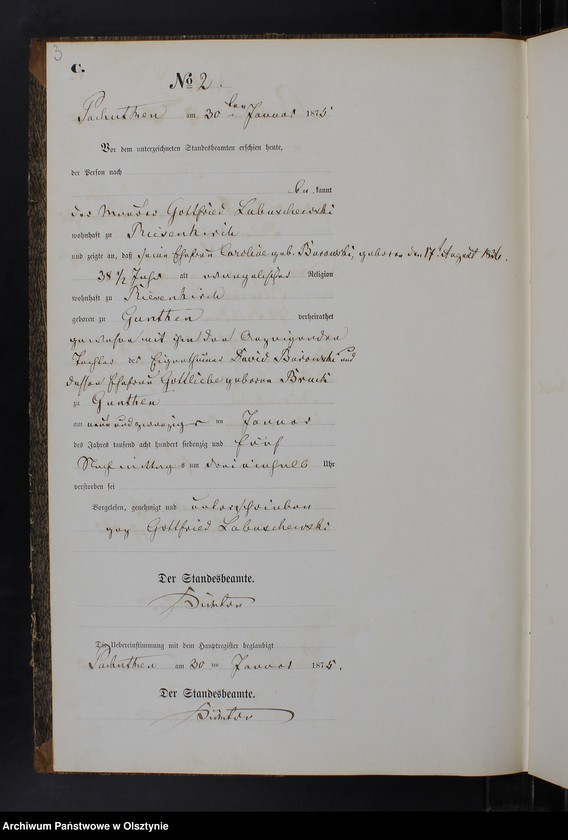 3
C.
No 2.
Pachutken am 30 ten Januar 1875
Vor dem unterzeichneten Standesbeamten erschien heute,
der Person nach
be kannt
der Maurer Gottfried Labuschewski
wohnhaft zu Riesenkirch
und zeigte an, daß seine Ehefrau Caroline geb. Barowski, geboren den 17t August 1836.
38 1/2 Jahr alt evangelischer Religion
wohnhaft zu Riesenkirch
geboren zu Gunthen verheirathet
gewesen mit ihm dem Anzeigenden
Tochter des Eigenthümer David Barowski und
dessen Ehefrau Gottliebe geborene
zu Gunthen
am neun und zwanzigs ten Januar
des Jahres tausend acht hundert siebenzig und fünf
Nachmittags um drei einhalb Uhr
verstorben sei
Vorgelesen, genehmigt und unterschrieben
gez Gottfried Labuschewski
Der Standesbeamte.
Die Uebereinstimmung mit dem Hauptregister beglaubigt
Pachutken am 30 ten Januar 1875.
Der Standesbeamte.
Archiwum Państwowe w Olsztynie